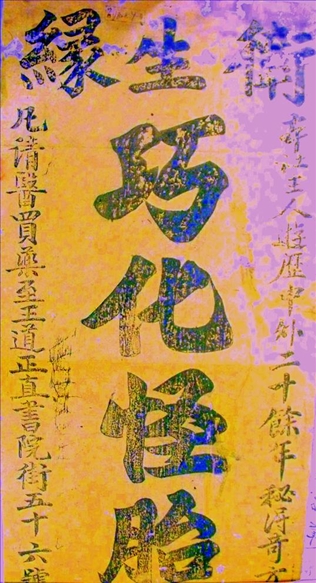 街生緣
本社主人遊歷中外二十餘年秘得奇方
巧化怪胎
凡請醫買藥至王道正直書院街五十六號